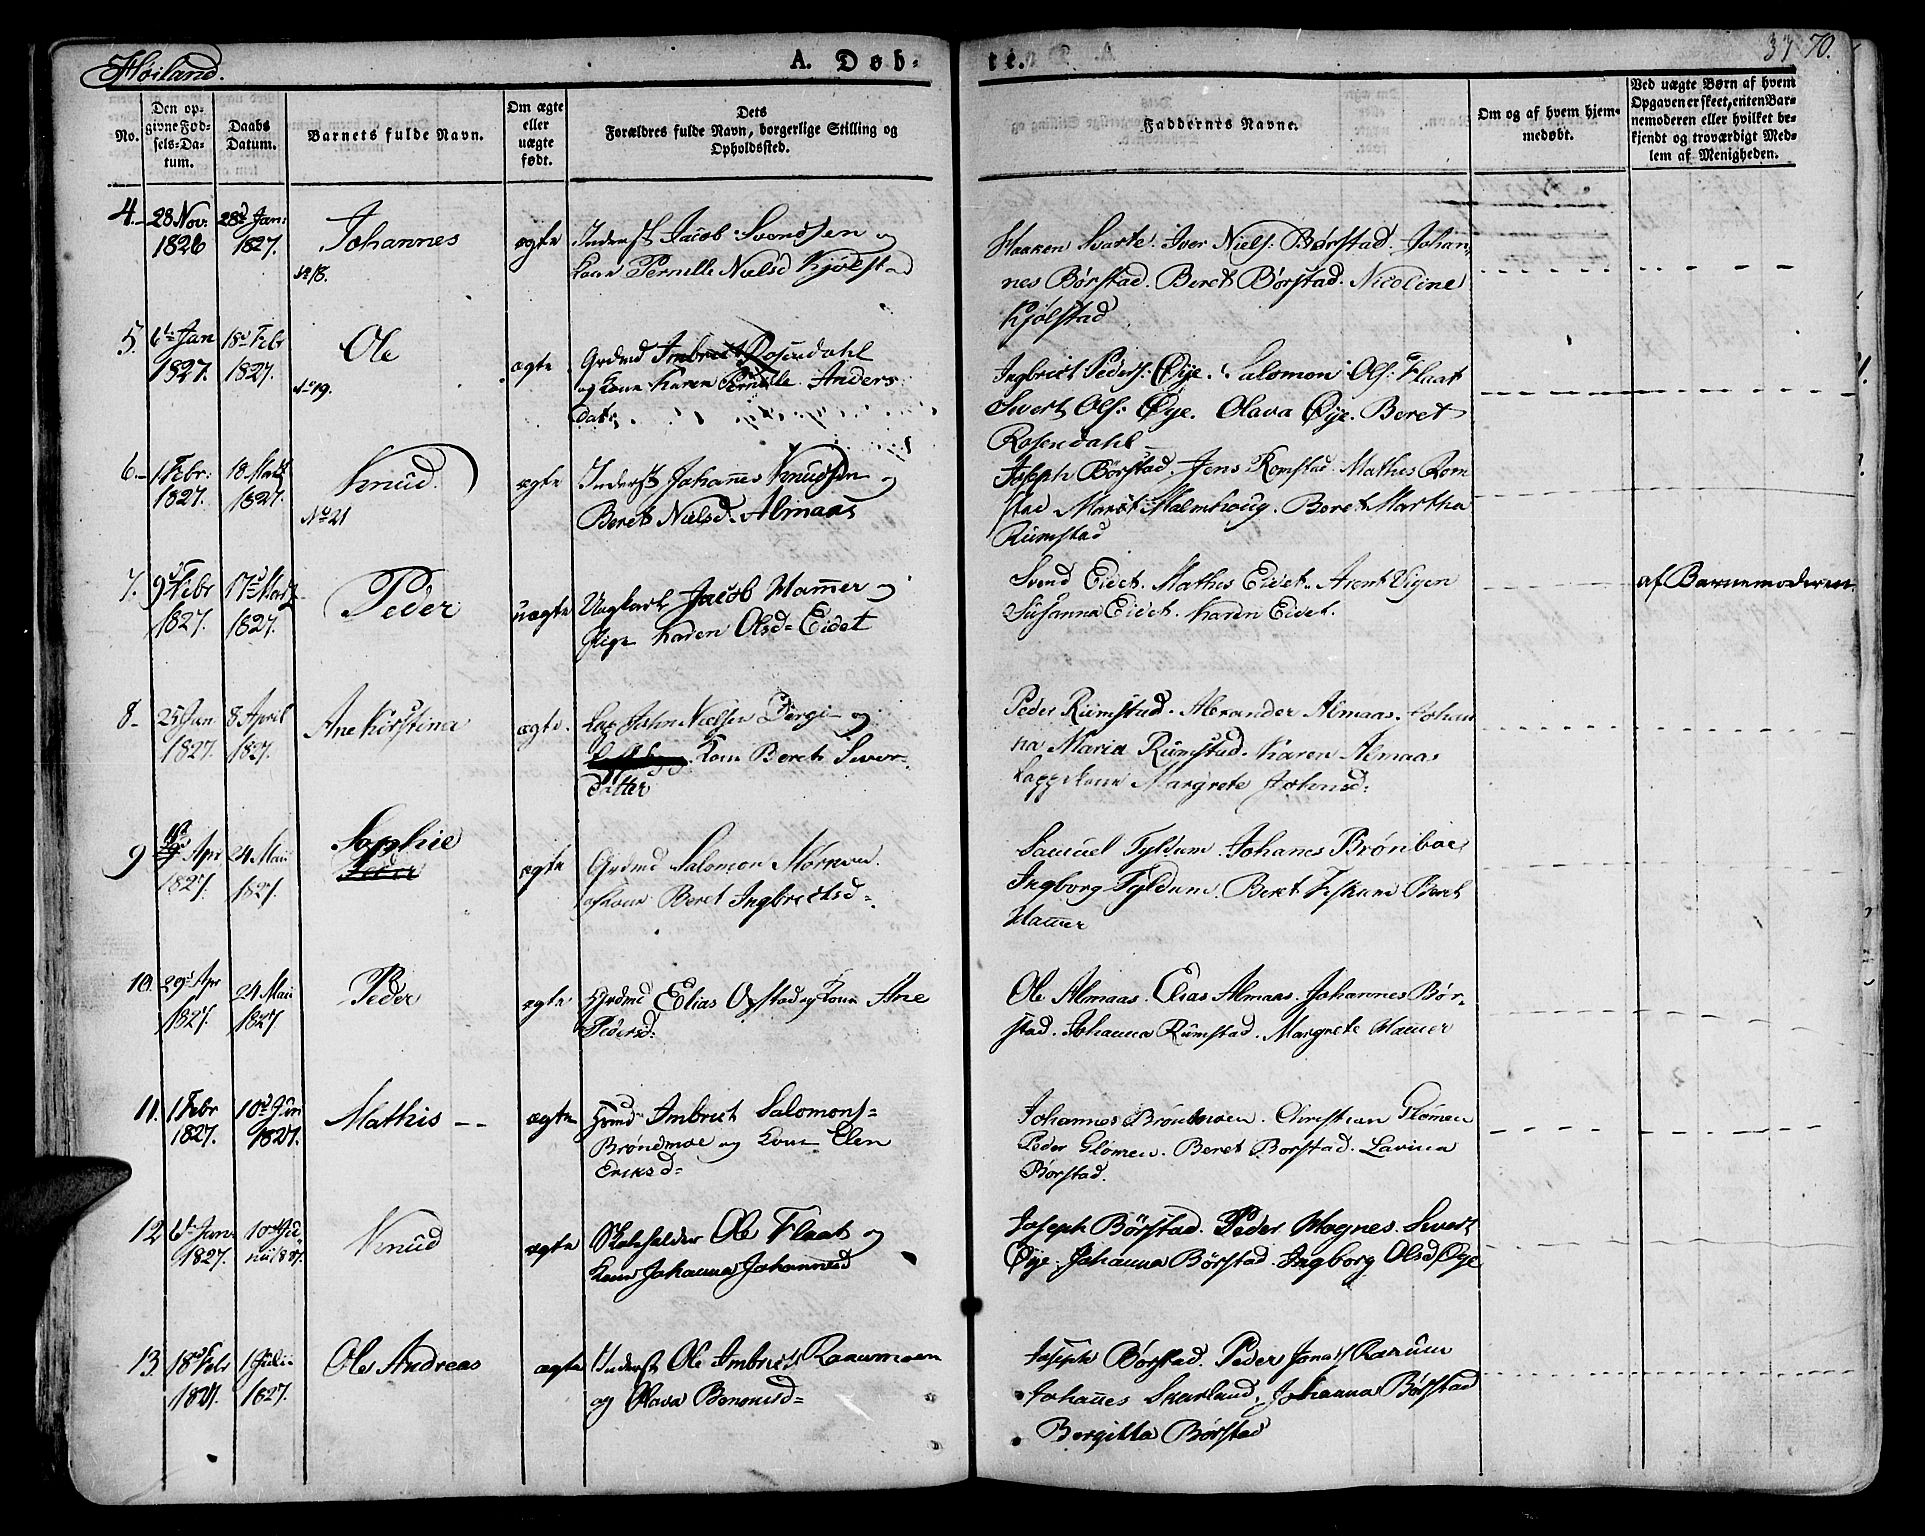 Høiland.
A. Døb-
te.
37 70.
No.
Den op-
givne Fød-
sels-Da-
tum.
Daabs
Datum.
Barnets fulde Navn.
Om ægte
eller
uægte
født.
Dets
Forældres fulde Navn, borgerlige Stilling og
Opholdssted.
Faddernes Navne.
Om og af hvem hjem-
medøbt.
Ved uægte Børn af hvem
Opgaven er skeet, enten Bar-
nemoderen eller hvilket be-
kjendt og troværdigt Med-
lem af Menigheden.
4. 28 Nov: 1826
28 Jan: 1827.
Johannes
ægte
Inderst Jacob Svendsen og
Kone Pernelle Nielsd Kjølstad
Haaken Svarte. Iver Niels: Børstad. Johan
nes Børstad. Beret Børstad. Nicoline
Kjølstad
5. 6te Jan 1827.
18 Febr 1827.
Ole
No 19.
ægte
Grdmd Imbrict Rosendahl
og Kone Karen Pernille Anders
datr
Ingbrict Peders: Øye. Salomon Ols: Flaat
Sivert Ols: Øye. Olava Øye. Beret
Rosendahl
6 - 1 Febr: 1827.
18 Marts 1827.
Knud.
No 21
ægte
Inderst Johannes Knudsen og
Beret Nielsd. Almaas
Joseph Børstad. Jens Romstad. Mathis Rom
stad Marit Malmhoug. Beret Martha
Rumstad
7. 9 Febr 1827.
17 Marts 1827.
Peder
uægte
Ungkarl Jacob Hammer og
Pige Karen Olsd= Eidet
Svend Eidet. Mathis Eidet. Arent Vigen
Susanna Eidet. Karen Eidet.
af Barnemoderen.
8 - 25 Jan 1827.
8 April 1827.
Ane Kirstina
ægte.
Lap John Nielsen Bergi og
Kone Beret Siver-
datter
Peder Rumstad. Alexander Almaas. Johan
na Maria Rumstad. Karen Almaas
Lappekone Margrete Johnsd:
9 Apr 1827.
24 Mai 1827.
Sophie
ægte
Grdmd Salomon
Kone Beret Ingbrictsd=
Samuel Tyldum. Johanes Brønboe
Ingborg Tyldum. Beret Fiskum Beret
Hammer
10. 29 Apr 1827.
24 Mai 1827
Peder
ægte
Grdmd Elias Opstad og Kone Ane
Pedersd:
Ole Almaas. Elias Almaas. Johannes Bør-
stad. Johanna Rumstad. Margrete Hammer
11. 1 Febr 1827.
10 Jun 1827.
Mathis
ægte
Grmd Imbrict Salomons=
Brøndmoe og Kone Elen
Eriksd=
Johannes Brønboen. Christian Glømen
Peder Glømen. Beret Børstad. Lavina
Børstad.
12 6te Jan 1827.
10 Ju-
nii 1827.
Knud
ægte
Ole Flaat og
Kone Johanna Johannesd
Joseph Børstad. Peder Hognes. Sivert
Øye. Johanna Børstad. Ingborg Olsd Øye
13. 18 Febr 1827.
1 Julii 1827.
Ole Andreas
ægte
Inderst Ole Imbrict: Raaummoen
og Olava Bensensd=
Joseph Børstad. Peder Jonas Raaum
Johannes Skarland. Johanna Børstad
Bergitta Børstad